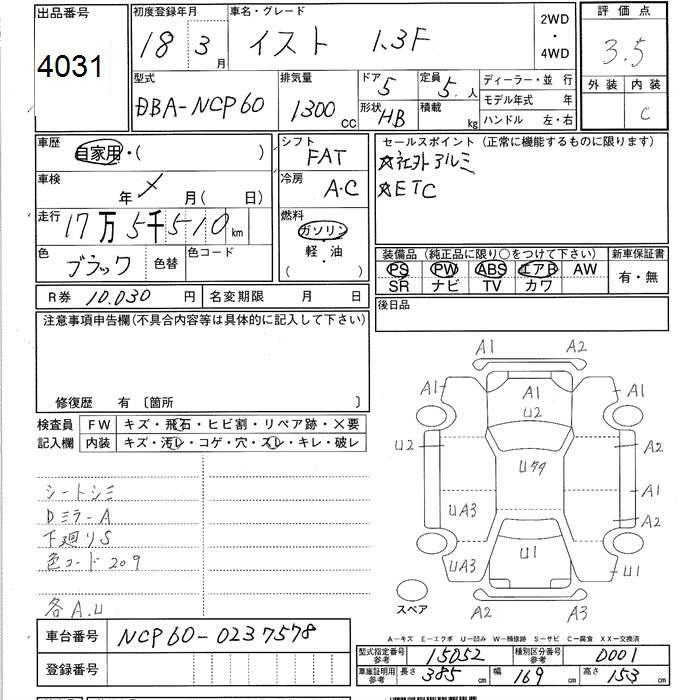 出品番号
4031
初度登録年月
18 3 月
車名・グレード
イスト 1.3F
2WD
・
4WD
評価点
3.5
外装 内装
C
型式
DBA-NCP60
排気量
1300 CC
ドア 5
形状 HB
定員 5 人
積載 kg
ディーラー・並行
モデル年式 年
ハンドル 左・右
車歴
自家用・( )
車検
年 月( 日)
走行
17万5千510km
色
ブラック
色替
色コード
シフト
FAT
冷房
A・C
燃料
ガソリン
軽・油
( )
セールスポイント(正常に機能するものに限ります)
☆社外アルミ
☆ETC
装備品(純正品に限り○をつけて下さい)
PS PW ABS エアB AW
SR ナビ TV カワ
新車保証書
有・無
後日品
R券 10.030 円
名変期限 月 日
注意事項申告欄(不具合内容等は具体的に記入して下さい)
修復歴 有 〔箇所 〕
検査員
記入欄
FW キズ・飛石・ヒビ割・リペア跡・×要
内装 キズ・汚レ・コゲ・穴・スレ・キレ・破レ
シートシミ
DミラーA
下廻りS
色コード209
各A.U
車台番号
NCP60-0237578
登録番号
A1 A2
A1 A1 A1
U2
U2 A2
A1
UA3 A2
UA3 U1 U1
A2 A3
スペア
A-キズ E-エクボ U-凹み W-補修跡 S-サビ C-腐食 XX-交換済
型式指定番号 参考 15052
種別区分番号 参考 0001
車庫証明用 参考
長さ 385 cm
幅 169 cm
高さ 153 cm